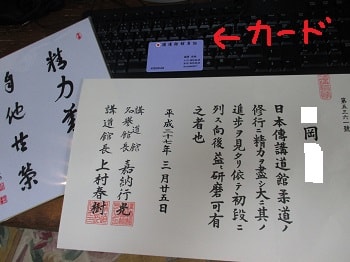 ←カード
精力善
自他共榮
第五三六一號
岡
日本傳講道館柔道ノ
修行ニ精力ヲ盡シ大ニ其ノ
進歩ヲ見タリ依テ初段ニ
列ス向後益々研磨可有
之者也
平成二十七年三月廿五日
講道館
名譽館長 嘉納行光
講道館長 上村春樹